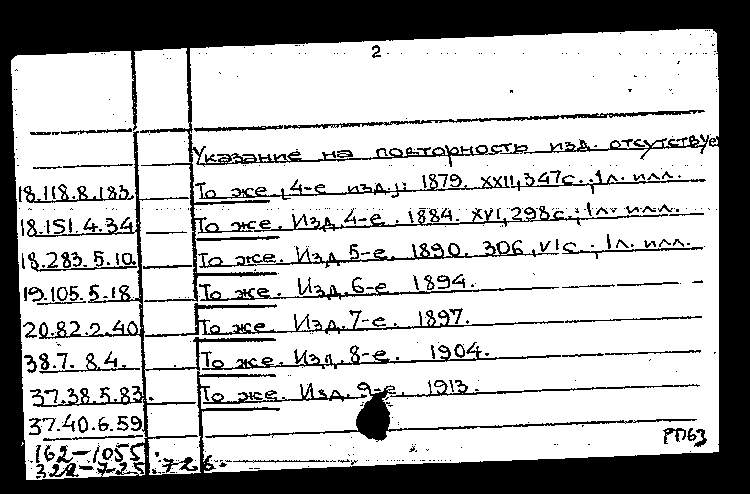 2
Указание на повторность изд. отсутствуе
18.118.8.183. То же, 4-е изд.; 1879. XXII, 347с.; 1л. илл.
18.151.4.34 То же. Изд. 4-е. 1884. XVI, 298с.; 1л. илл.
18.283.5.10. То же. Изд. 5-е. 1890. 306, VI с.; 1л. илл.
19.105.5.18 То же. Изд. 6-е 1894.
20.82.2.40 То же. Изд. 7-е. 1897.
38.7.84. То же. Изд. 8-е. 1904.
37.38.5.83. То же. Изд. 9-е. 1913.
37.40.6.59
РП63
162-1055.
322-725.726.